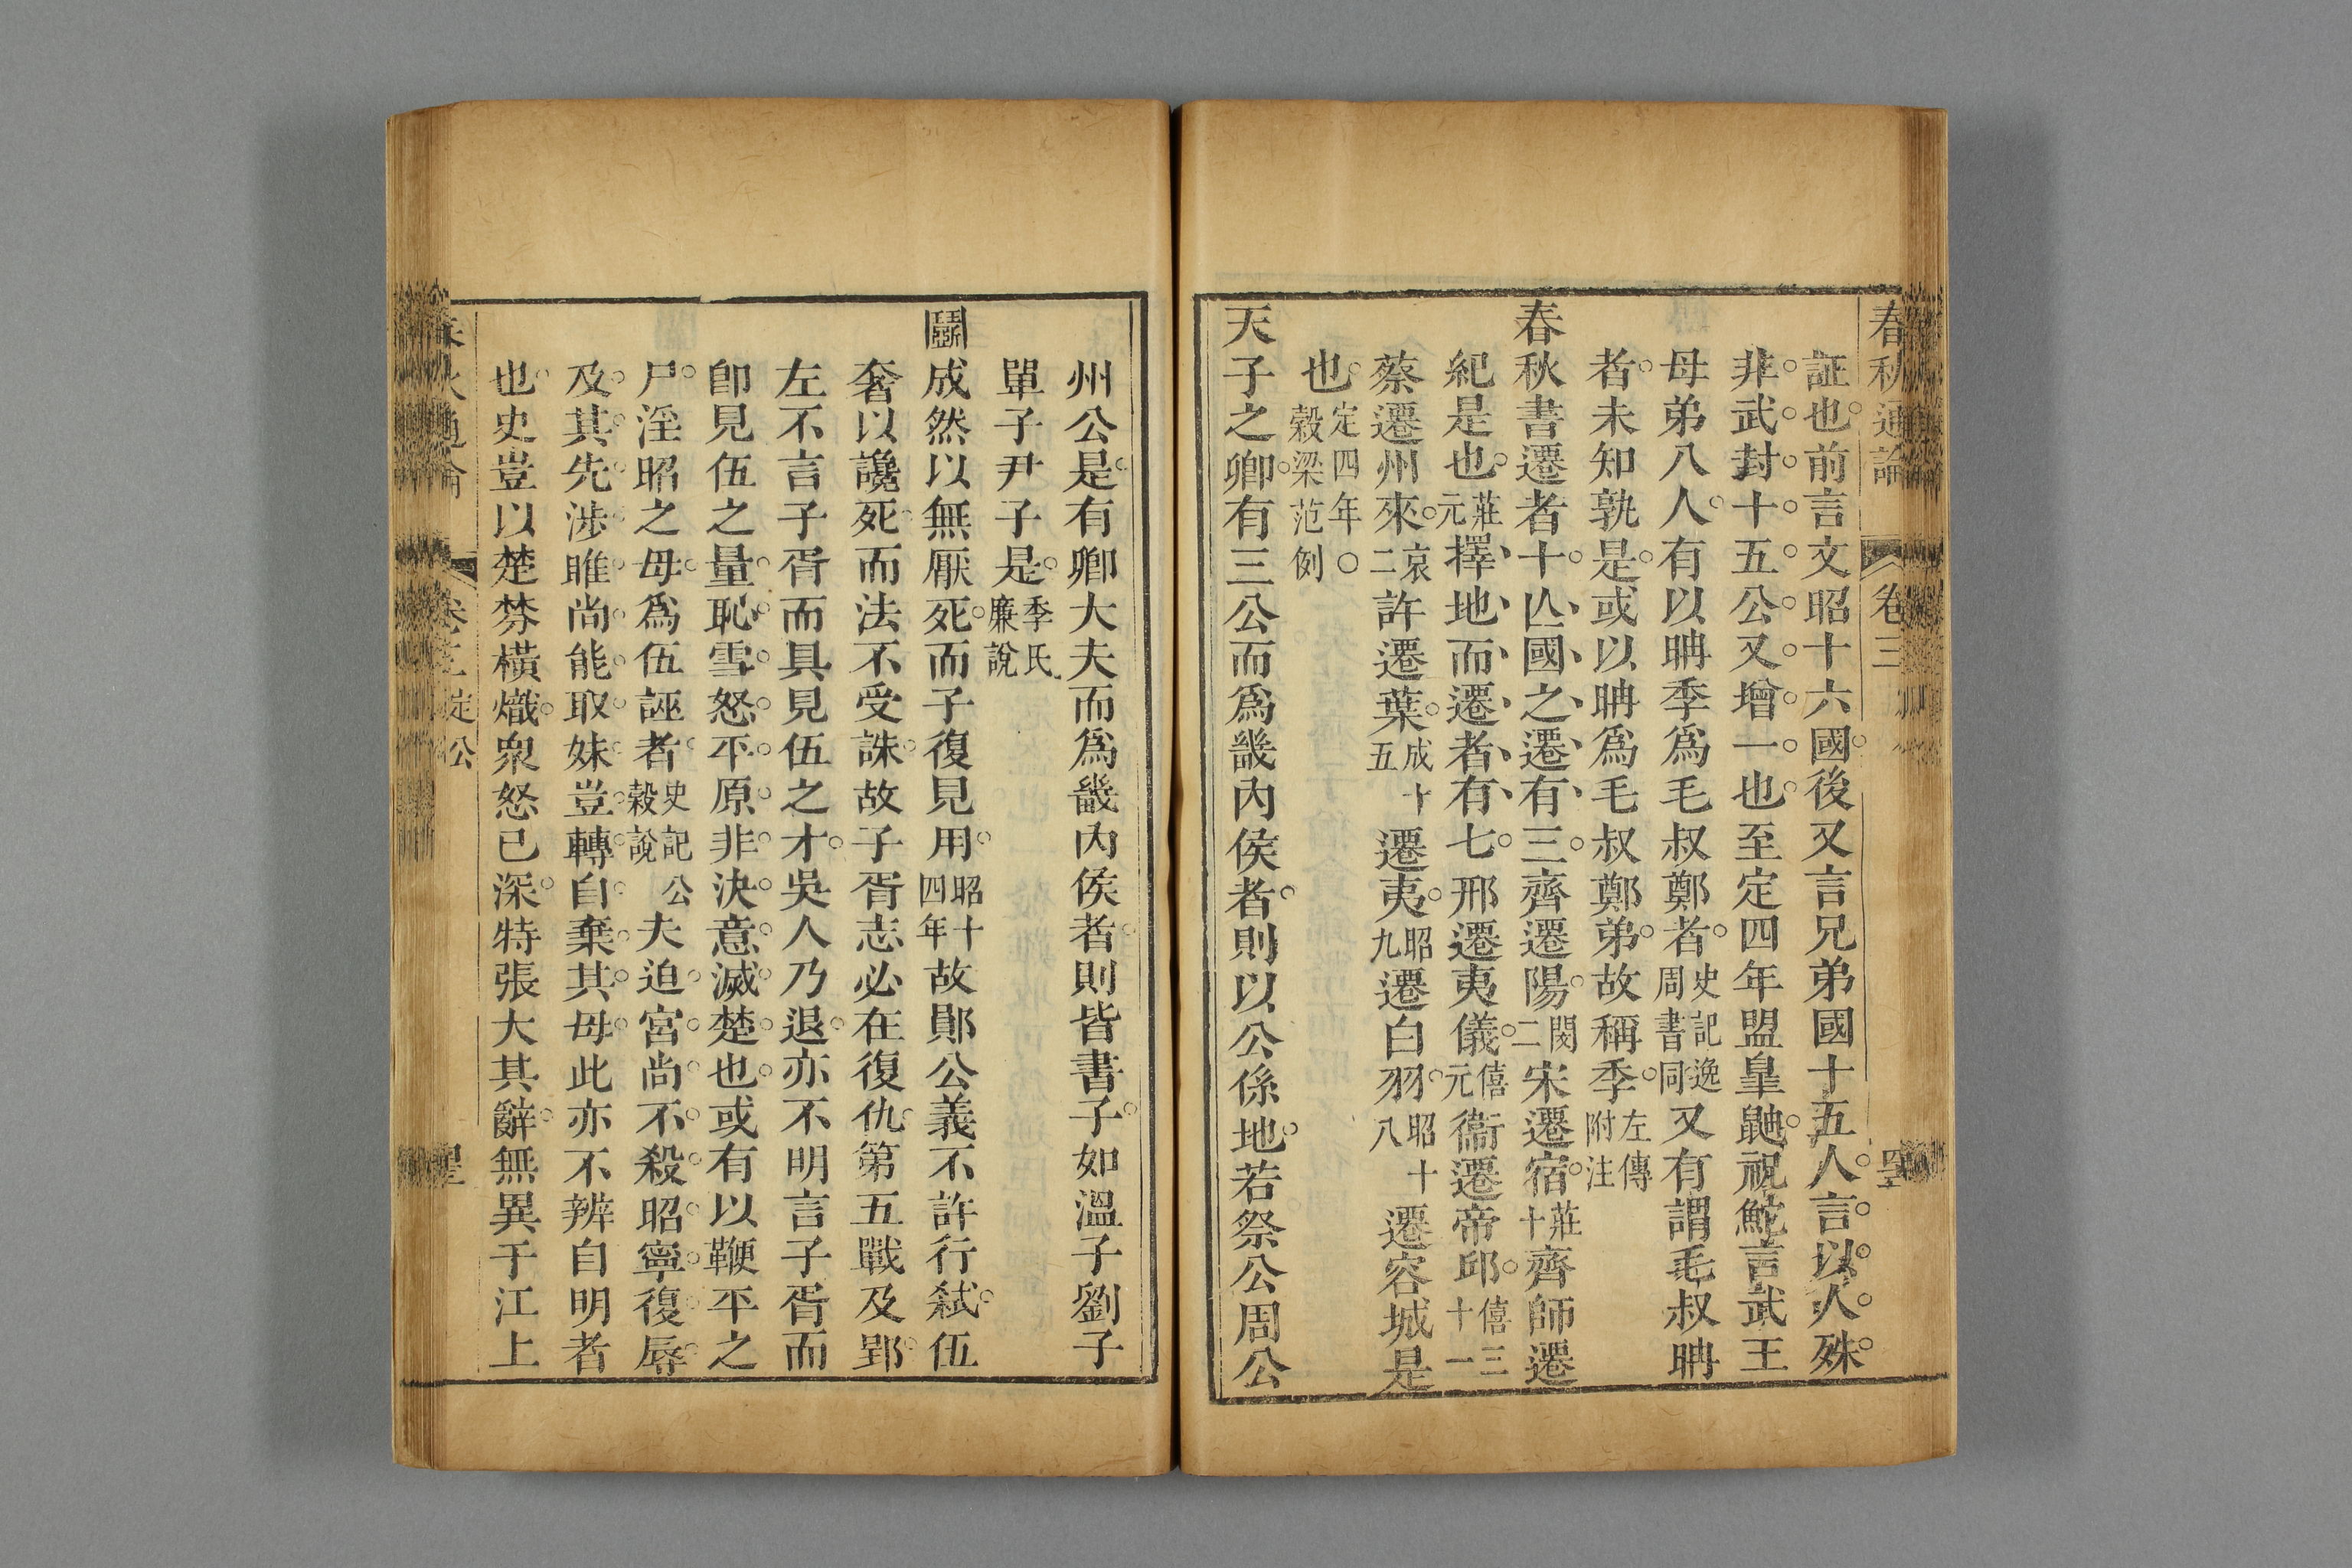 春秋通論 卷三
証也前言文昭十六國後又言兄弟國十五人言以人殊
非武封十五公又增一也至定四年盟皐鼬祝鮀言武王
母弟八人有以聃季爲毛叔鄭者史記逸周書同又有謂毛叔聃
者未知孰是或以聃爲毛叔鄭弟故稱季左傳附注
春秋書遷者十亾國之遷有三齊遷陽閔二宋遷宿莊十齊師遷
紀是也莊元擇地而遷者有七邢遷夷儀僖元衞遷帝邱僖三十一
蔡遷州來哀二許遷葉成十五遷夷昭九遷白羽昭十八遷容城是
也定四年○穀梁范例
天子之卿有三公而爲畿內侯者則以公係地若祭公周公
州公是有卿大夫而爲畿內侯者則皆書子如溫子劉子
單子尹子是季氏廉說
鬬成然以無厭死而子復見用昭十四年故鄖公義不許行弑伍
奢以讒死而法不受誅故子胥志必在復仇第五戰及郢
左不言子胥而具見伍之才吳人乃退亦不明言子胥而
卽見伍之量恥雪怒平原非決意滅楚也或有以鞭平之
尸淫昭之母爲伍誣者史記公穀說夫迫宮尚不殺昭寧復辱
及其先涉睢尚能取妹豈轉自棄其母此亦不辨自明者
也史豈以楚棼橫熾衆怒已深特張大其辭無異于江上
卷三 定公